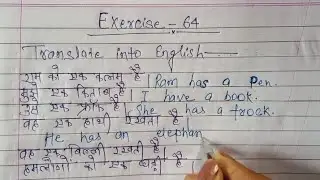 Exercise - 64
Translate into English
राम को एक कलम है | Ram has a Pen.
मुझे एक किताब है | I have a book.
उसे एक फ्रॉक है | She has a frock.
वह एक हाथी रखता है |
He has an elephan
वह एक बिल्ली रखती है |
हमलोगों को एक गाड़ी है |